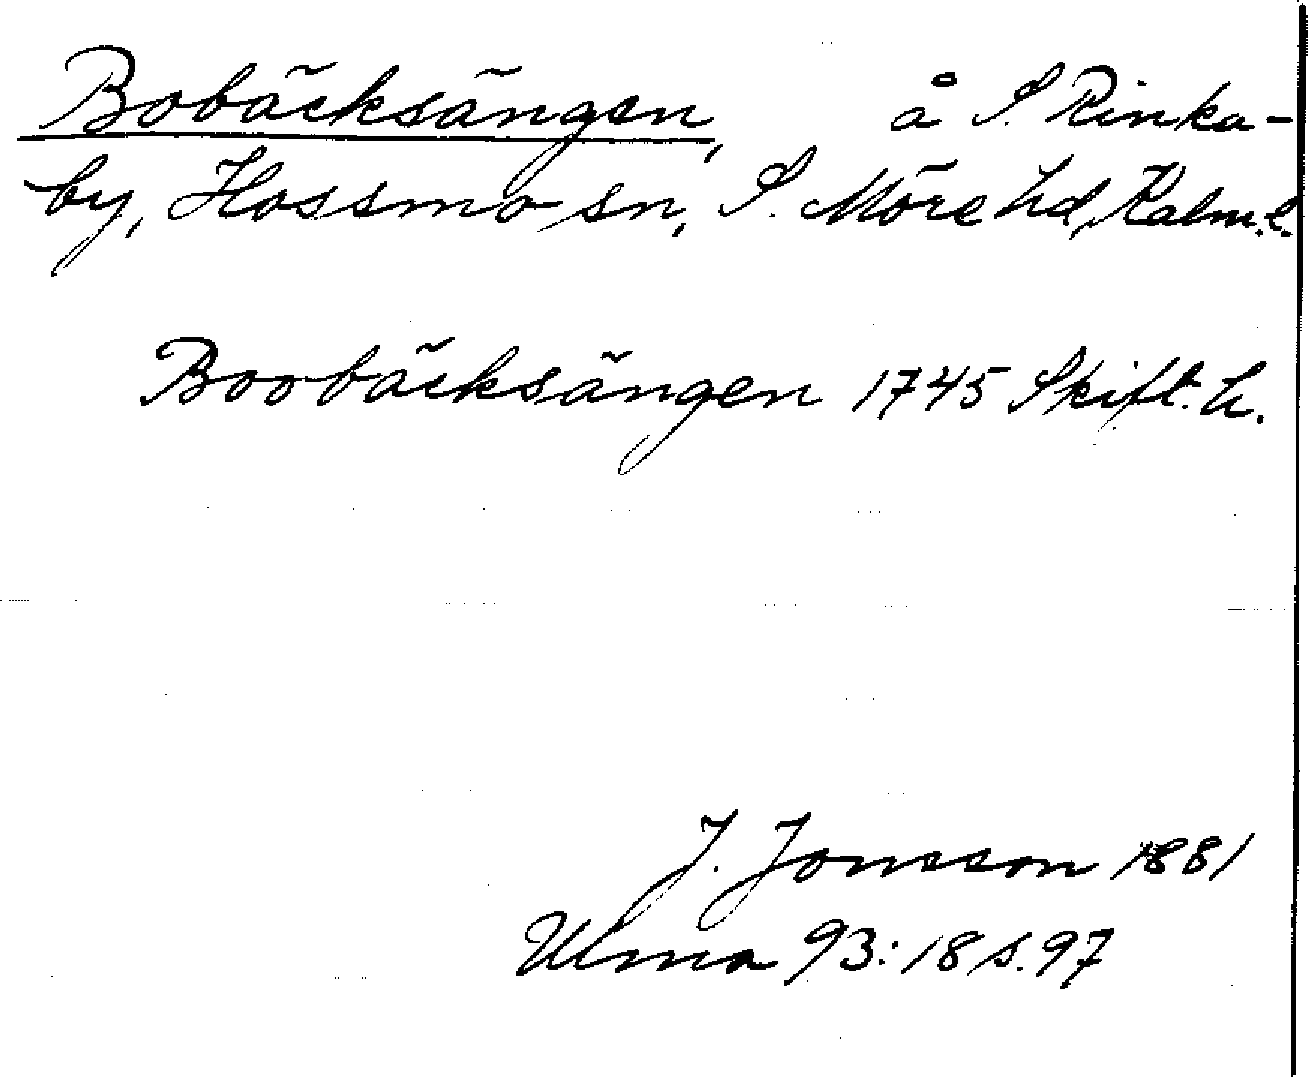 Bobäcksängen, å S. Rinka-
by, Hossmo sn, S. Möre hd, Kalm. l.
Boobäcksängen 1745 Skift. h.
J. Jonsson 1881
Ulma 93:18 s. 97